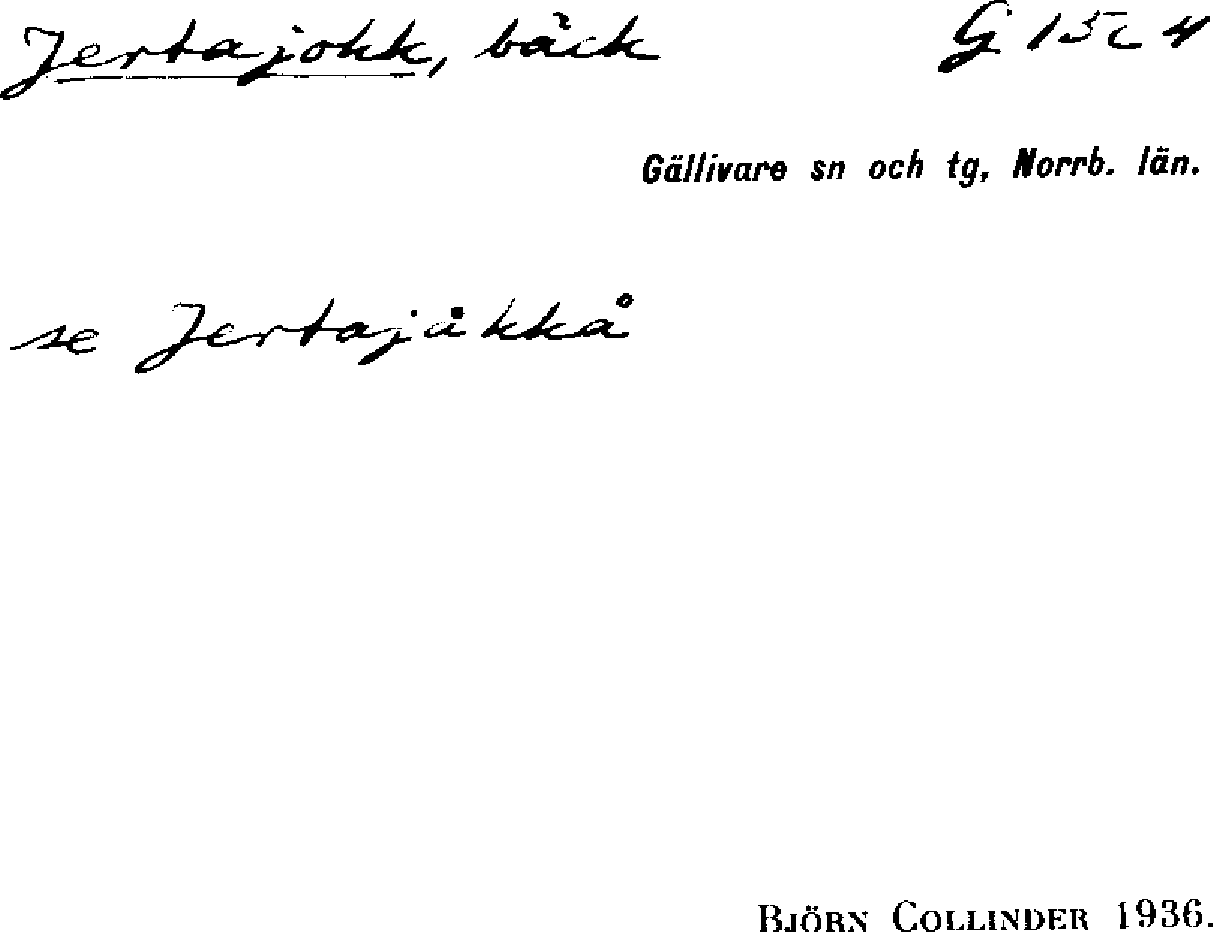 Jertajokk, bäck G 15c 4
Gällivare sn och tg, Norrb. län.
se Jertajåkkå
BJÖRN COLLINDER 1936.